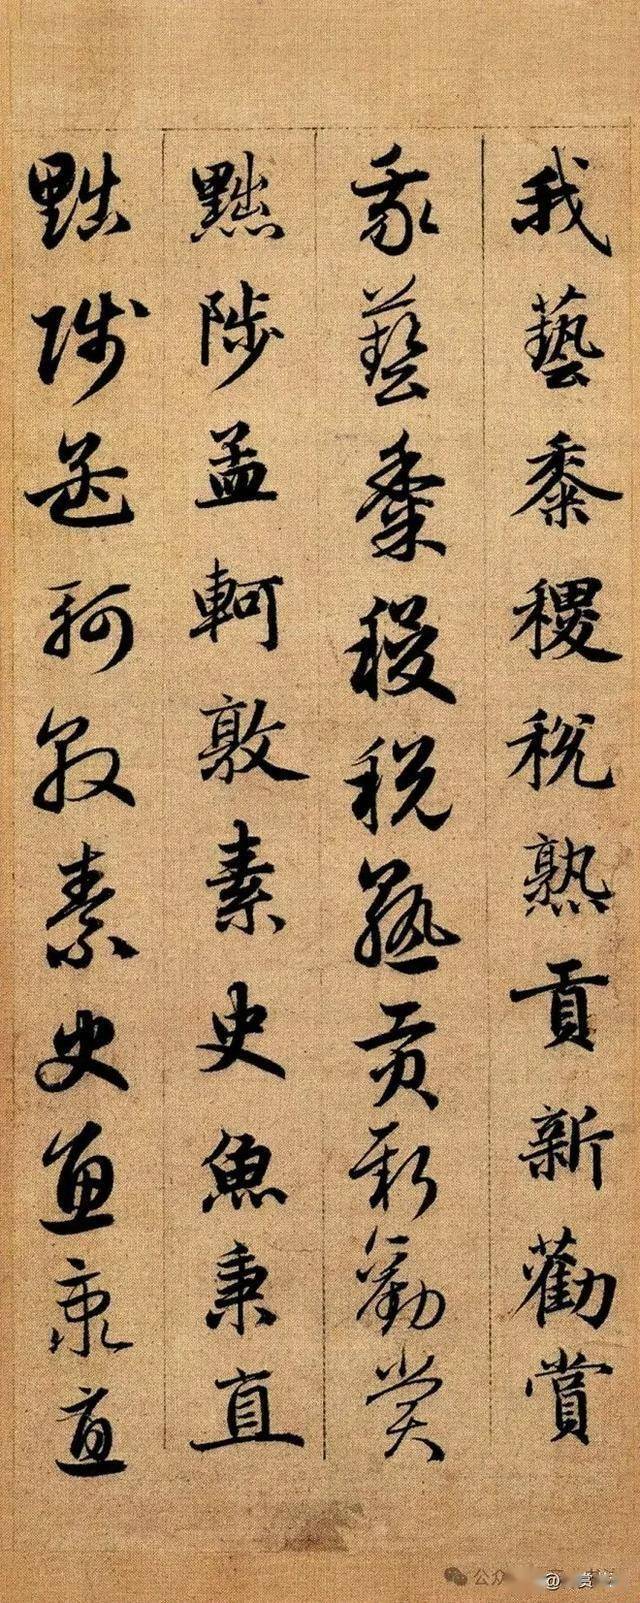 我藝黍稷稅熟貢新勸賞
我藝黍稷稅熟貢新勸賞
黜陟孟軻敦素史魚秉直
黜陟孟軻敦素史魚秉直
公众